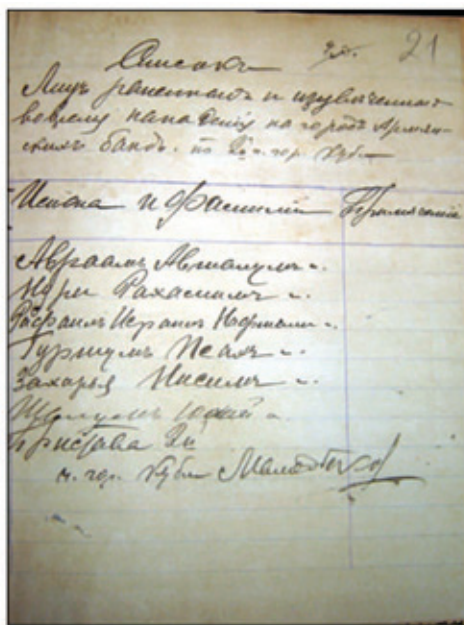 21
Списокъ
Лицъ раненныхъ и изувѣченныхъ
на городъ Армян-
скихъ бандъ. по 2й ч. гор. Кубы
Имена и фамилии Примѣчаній
Авраамъ Авшалумъ
Нури Рахамимъ
Рафаилъ Исраилъ Нафтали
Гуршумъ Песахъ
Захарья Нисимъ
Шалумъ
Пристава 2й
ч. гор. Кубы